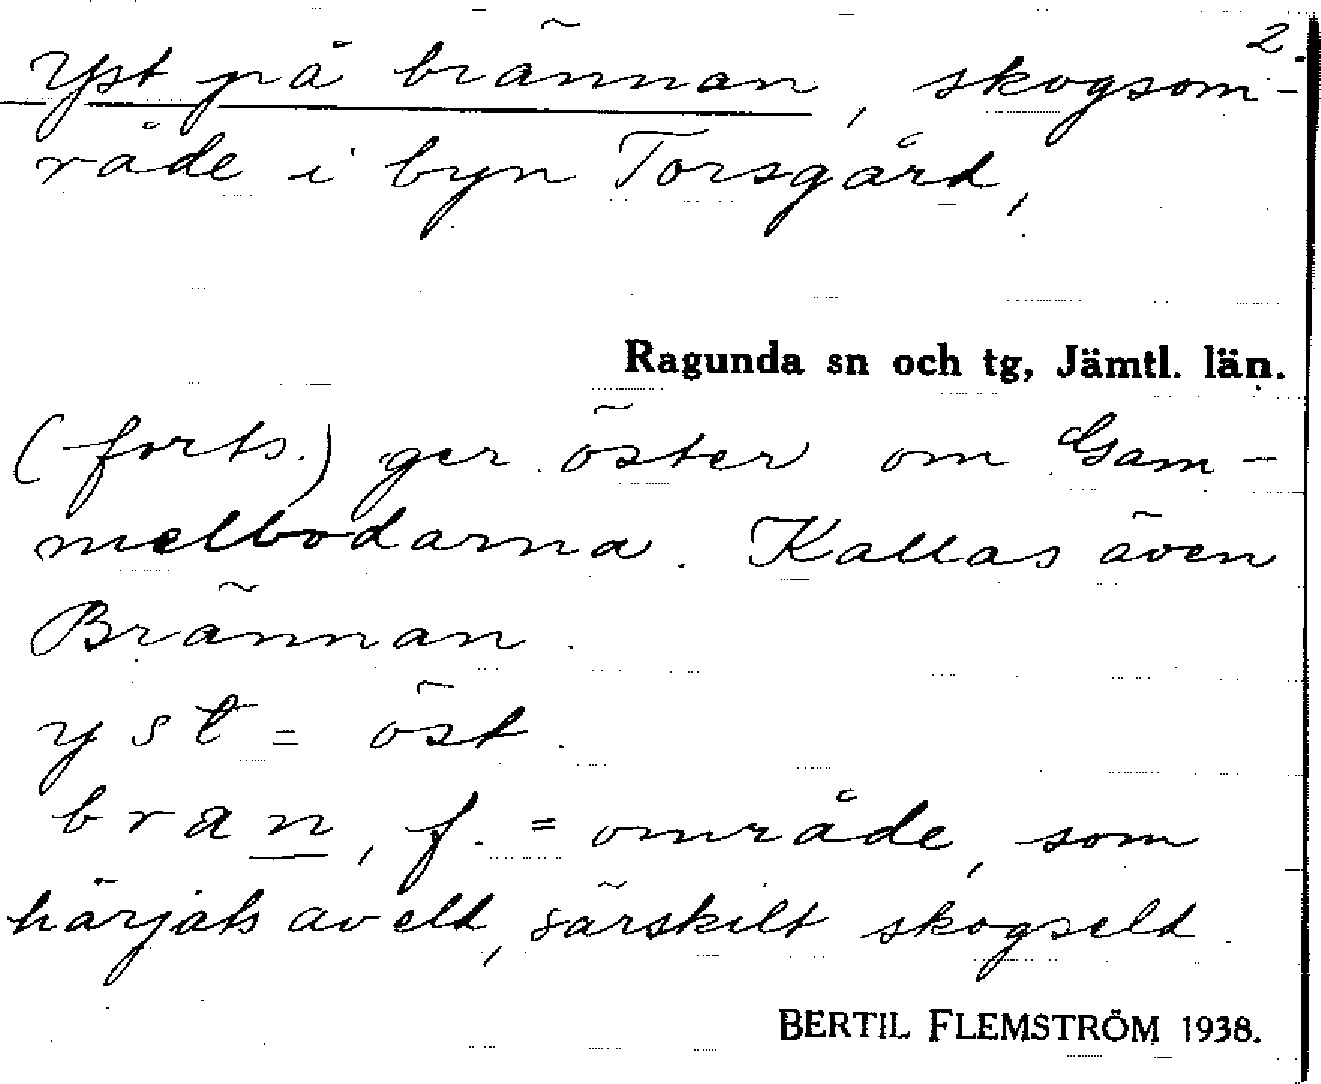 2.
Yst på brännan, skogsom-
råde i byn Torsgård,
Ragunda sn och tg, Jämtl. län.
(forts.) ger öster om Gam-
melbodarna. Kallas även
Brännan.
yst = öst.
bran, f. = område, som
härjats av eld, särskilt skogseld.
BERTIL FLEMSTRÖM 1938.